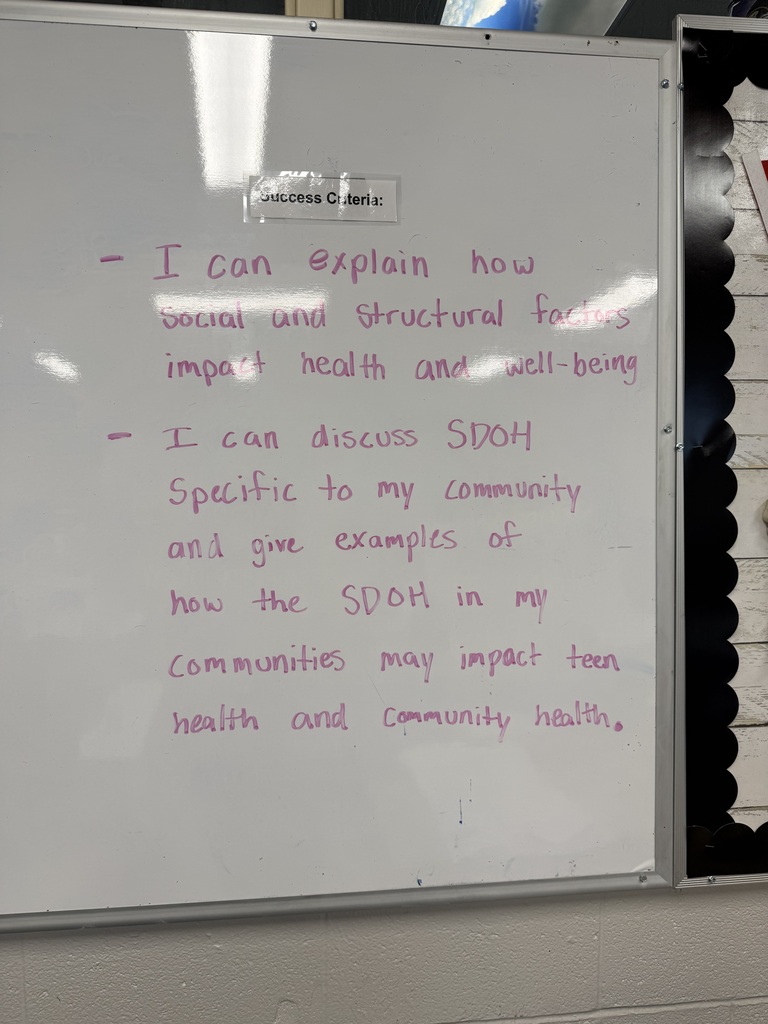 Success Criteria:
- I can explain how
social and structural factors
impact health and well-being
- I can discuss SDOH
Specific to my community
and give examples of
how the SDOH in my
communities may impact teen
health and community health.